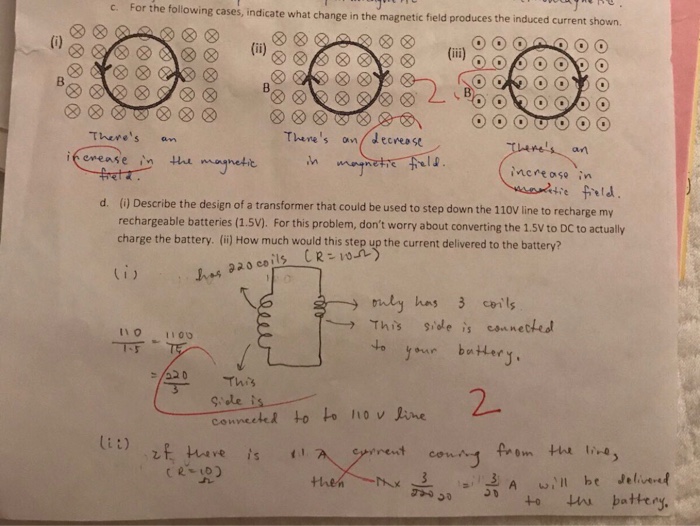 c. For the following cases, indicate what change in the magnetic field produces the induced current shown.
(i) (ii) (iii)
B B B
2
There's an
increase in the magnetic
field.
There's an decrease
in magnetic field.
There's an
increase in
magnetic field.
d. (i) Describe the design of a transformer that could be used to step down the 110V line to recharge my
rechargeable batteries (1.5V). For this problem, don't worry about converting the 1.5V to DC to actually
charge the battery. (ii) How much would this step up the current delivered to the battery?
(i) has 220 coils (R=10Ω)
only has 3 coils
This side is connected
to your battery.
110/1.5 = 1100/15
= 220/3
This
side is
connected to to 110 v line
2
(ii) If there is 11 A current coming from the line,
(R=10Ω)
then 11 x 3/220 20 = 3/20 A will be delivered
to the battery.